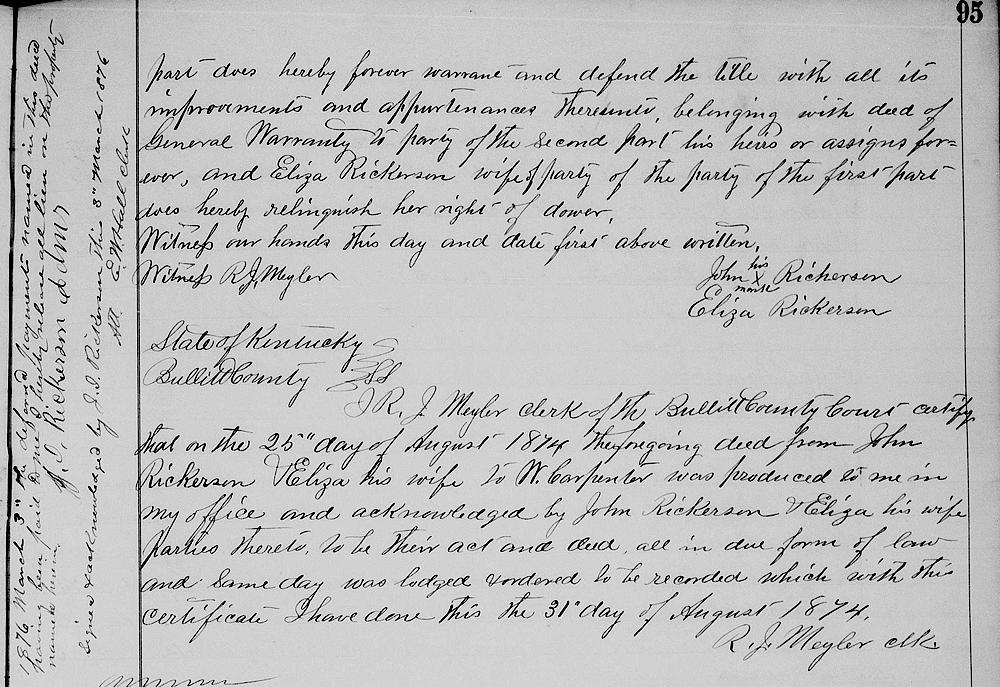 95
part does hereby forever warrant and defend the title with all its
improvements and appurtenances thereunto, belonging with deed of
General Warranty to party of the Second part his heirs or assigns for=
ever, and Eliza Rickerson wife of party of the party of the first part
does hereby relinquish her right of dower,
Witness our hands this day and date first above written,
Witness R. J. Meyler
John his X mark Rickerson
Eliza Rickerson
State of Kentucky
Bullitt County SS
I R. J. Meyler clerk of the Bullitt County Court certify
that on the 25" day of August 1874 the foregoing deed from John
Rickerson & Eliza his wife to W. Carpenter was produced to me in
my office and acknowledged by John Rickerson & Eliza his wife
parties thereto, to be their act and deed, all in due form of law
and same day was lodged & ordered to be recorded which with this
certificate I have done this the 31" day of August 1874.
R. J. Meyler clk
1876 March 3" The deferred payments named in this deed
having been paid to me I hereby release all lien on the property
named herein.
J. I. Rickerson Admr
Signed & acknowledged by J. I. Rickerson this 3" March 1876
Att E. W. Hall Clerk